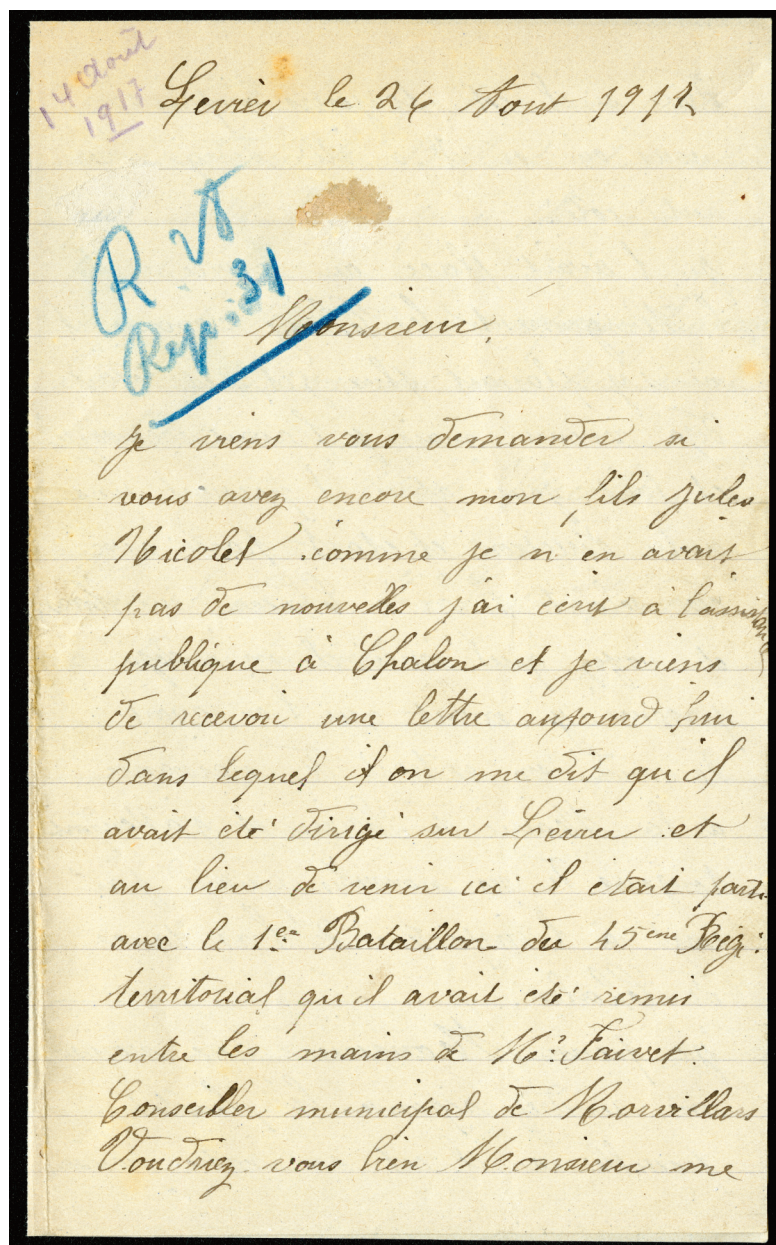 14 Août
1917
Levier le 26 Aout 1917
R. 28
Rep. 31
Monsieur,
Je viens vous demander si
vous avez encore mon fils Jules
Nicolet comme je n'en avait
pas de nouvelles j'ai écrit a l'assistance
publique à Chalon et je viens
de recevoir une lettre aujourd'hui
dans lequel il on me dit qu'il
avait été dirigé sur Levier et
au lieu de venir ici il était parti
avec le 1er Bataillon du 45ème Régi:
territorial qu'il avait été remis
entre les mains de Mr Faivet.
Conseiller municipal de Morvillars
Voudriez vous bien Monsieur me